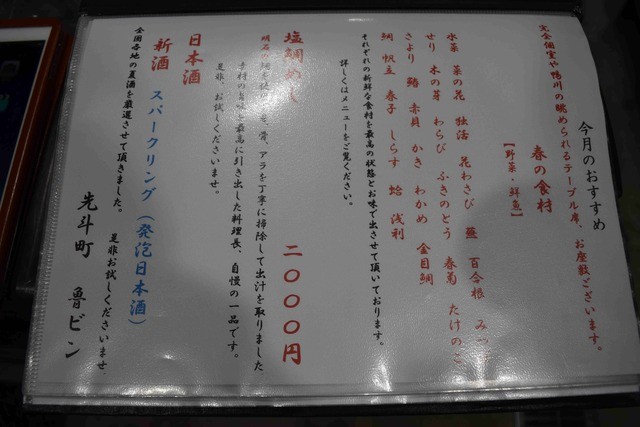 完全個室や鴨川の眺められるテーブル席、お座敷ございます。
今月のおすすめ
春の食材
【野菜・鮮魚】
水菜 菜の花 独活 花わさび 蕪 百合根 みつ
せり 木の芽 わらび ふきのとう 春菊 たけのこ
さより 鰆 赤貝 かき わかめ 金目鯛
鯛 帆立 春子 しらす 蛤 浅利
それぞれの新鮮な食材を最高の状態とお味で出させて頂いております。
詳しくはメニューをご覧ください。
塩鯛めし 二〇〇〇円
明石の鯛を使い、骨、アラを丁寧に掃除して出汁を取りました
素材の旨味を最高に引き出した料理長、自慢の一品です。
是非、お試しくださいませ。
日本酒
新酒 スパークリング(発泡日本酒)
全国各地の夏酒を厳選させて頂きました。 是非お試しくださいませ
先斗町 魯ビン